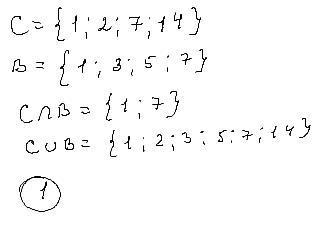 C = {1; 2; 7; 14}
B = {1; 3; 5; 7}
C∩B = {1; 7}
C∪B = {1; 2; 3; 5; 7; 14}
1